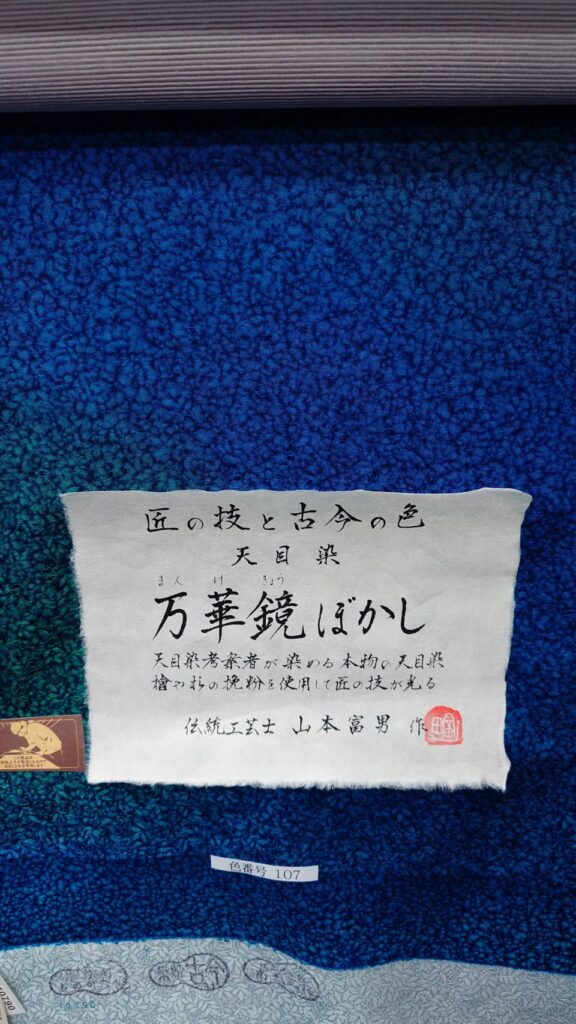 匠の技と古今の色
天目染
まんげきょう
万華鏡ぼかし
天目染考案者が染める本物の天目染
檜や杉の挽粉を使用して匠の技が光る
伝統工芸士 山本富男 作
色番号 107
10790
10790